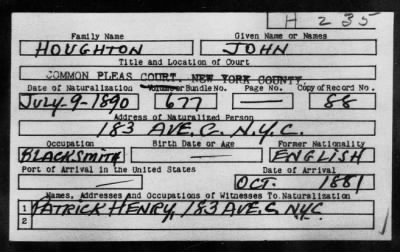 H 235
Family Name Given Name or Names
HOUGHTON JOHN
Title and Location of Court
COMMON PLEAS COURT, NEW YORK COUNTY.
Date of Naturalization Volume or Bundle No. Page No. Copy of Record No.
JULY-9-1890 677 — 88
Address of Naturalized Person
183 AVE. C. N.Y.C.
Occupation Birth Date or Age Former Nationality
BLACKSMITH — ENGLISH
Port of Arrival in the United States Date of Arrival
— OCT. 1881
Names, Addresses and Occupations of Witnesses To Naturalization
1 PATRICK HENRY, 183 AVE. C. NYC.
2